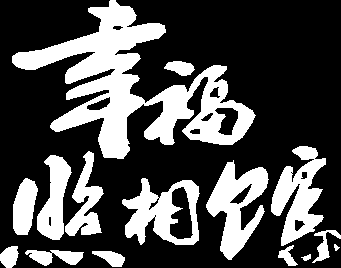 幸福
照相馆